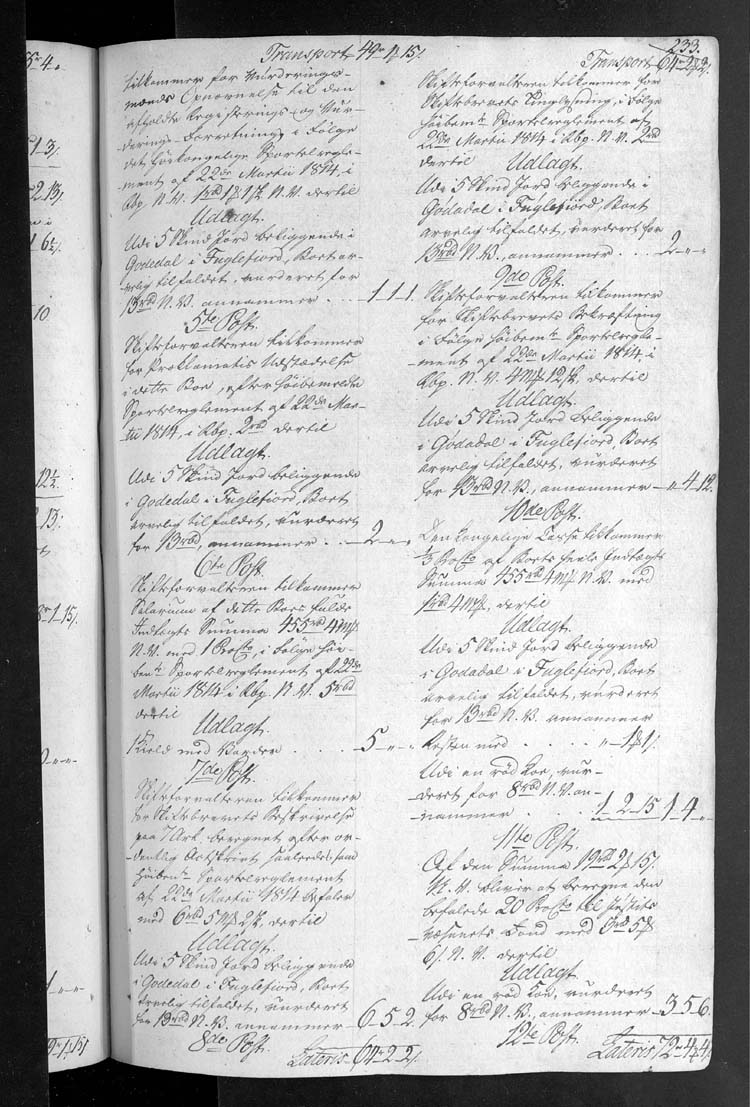 233.
Transport 49 rd 1 ₰ 15 ſ
tilkommer for Vurderings-
mænds Opnævnelse til den
afholdte Registerings- og Vur-
derings-Forretning i Følge
det høikongelige Sportelregle-
ment af 22de Martii 1814, i
Rbg. N. V. 1rbd 1 ₰ 1 ſ N. V. dertil
Udlagt.
Udi 5 Skind Jord beliggende i
Gödedal i Fuglefiord, Boet ar-
velig tilfaldet, vurderet for
13rbd N. V. annammer . . . 1-1-1.
5te Post.
Skifteforvalteren tilkommer
for Proklamatis Udstædelse
i dette Boe, efter høibemeldte
Sportelreglement af 22de Mar-
tii 1814, i Rbg. 2rbd dertil
Udlagt.
Udi 5 Skind Jord beliggende
i Gödedal i Fuglefiord, Boet
arvelig tilfaldet, vurderet
for 13rbd, annammer . . 2 - „ - „
6te Post.
Skifteforvalteren tilkommer
Salarium af dette Boes fulde
Indtægts Summa 455rbd 4m ſ
N. V. med 1 Procto, i Følge høi-
bemte Sportelreglement af 22de
Martii 1814 i Rbg. N. V. 5rbd
dertil
Udlagt.
1 Kield med Varder . . . . 5 - „ - „
7de Post.
Skifteforvalteren tilkommer
for Skiftebrevets Beskrivelse
paa 7 Ark beregnet efter or-
dentlig Actskrivt saaledes som
høibemte Sportelreglement
af 22de Martii 1814 befaler
med 6rbd 5m ſ 2 ſ, dertil
Udlagt.
Udi 5 Skind Jord beliggende
i Gödedal i Fuglefiord, Boet
arvelig tilfaldet, vurderet
for 13rbd N. V. annammer 6-5-2.
8de Post. Lateris 64-2-2 ſ
Transport 64 rd 2 ₰ 2 ſ
Skifteforvalteren tilkommer for
Skiftebrevets Tinglysning, i Følge
høibemte Sportelreglement af
22de Martii 1814 i Rbg. N. V. 2rbd
dertil Udlagt.
Udi 5 Skind Jord beliggende i
Gödadal i Fuglefiord, Boet
arvelig tilfaldet, vurderet for
13rbd N. V., annammer . . . . 2 - „ - „
9de Post.
Skifteforvalteren tilkommer
for Skiftebrevets Bekræftning
i Følge høibemte Sportelregle-
ment af 22de Martii 1814, i
Rbg. N. V. 4m ſ 12 ſ, dertil
Udlagt.
Udi 5 Skind Jord beliggende
i Gödadal i Fuglefiord, Boet
arvelig tilfaldet, vurderet
for 13rbd N. V., annammer „-4-12.
10de Post.
Den kongelige Casse tilkommer
1/3 Procto af Boets heele Indtægts
Summa 455rbd 4m ſ N. V. med
1rbd 4m ſ, dertil
Udlagt.
Udi 5 Skind Jord beliggende
i Gödadal i Fuglefiord, Boet
arvelig tilfaldet, vurderet
for 13rbd N. V. annammer
Resten med . . . . „ - 1 ₰ 1 ſ
Udi en rød Koe, vur-
deret for 8rbd N. V. an-
nammer . . . . 1-2-15 1-4 „
11te Post.
Af den Summa 19rbd 2 ₰ 15 ſ
N. V. bliver at beregne den
befalede 20 Procto til Justits
væsenets Fond med 3rbd 5 ₰
6 ſ N. V. dertil
Udlagt.
Udi en rød Koe, vurderet
for 8rbd N. V., annammer 3-5-6.
12te Post. Lateris 72-4-4 ſ